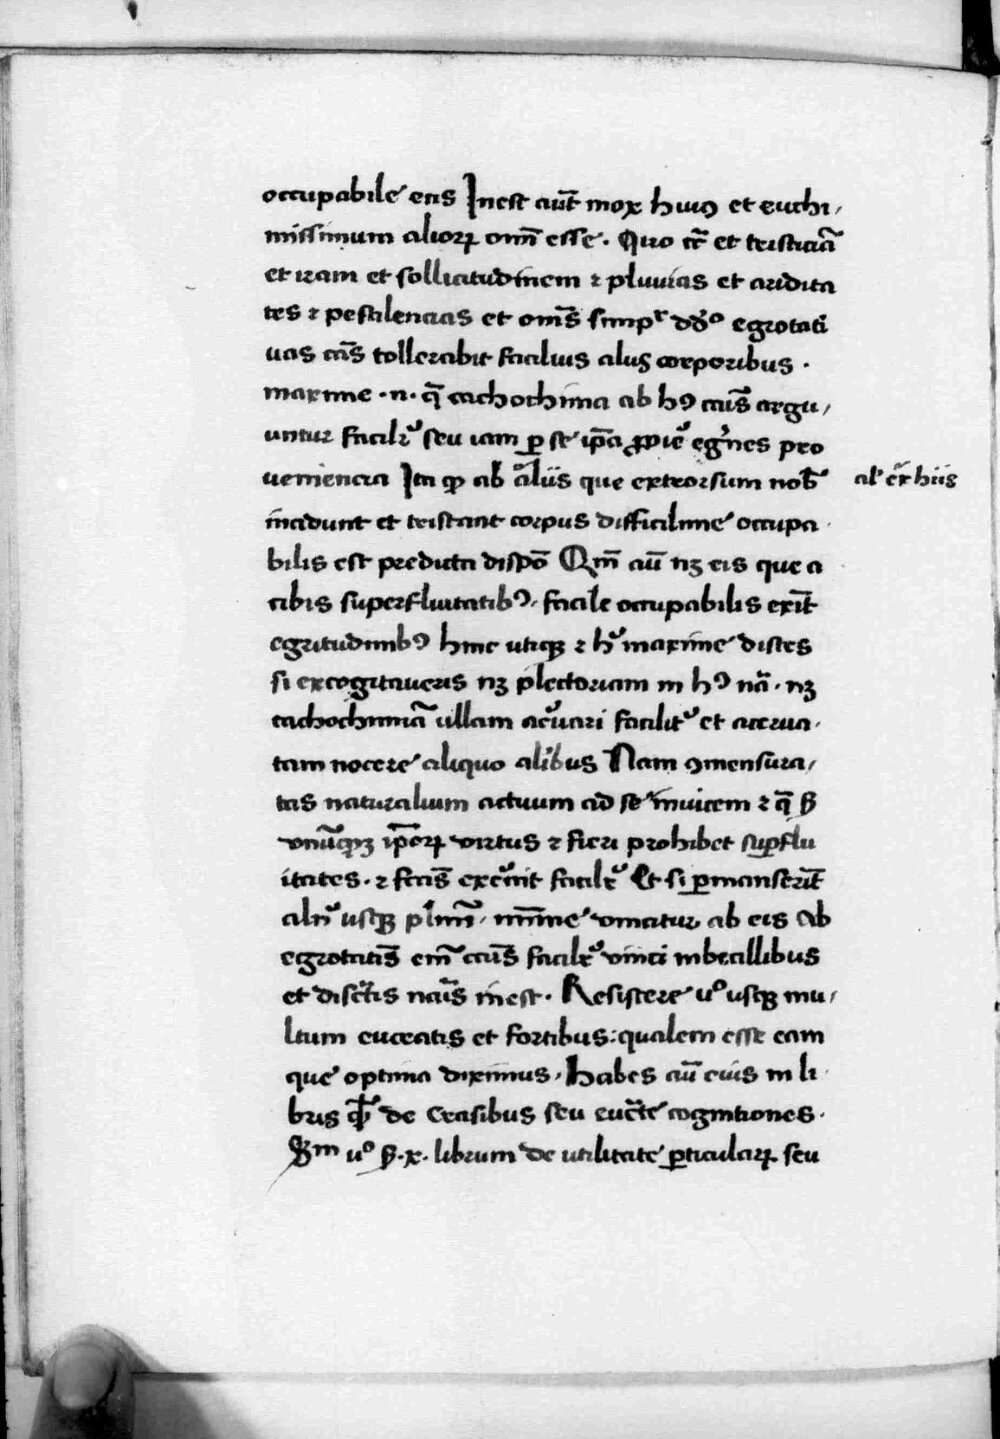 occupabile ens Inest aut̄ mox huiꝯ et euchi,
missimum alioꝝ om̄ esse. Quo cr̄ et tristiciā
et iram et sollicitudinem ⁊ pluuias et aridita
tes ⁊ pestilencias et om̄s simpʳ ddo egrotati
uas cās tollerabit facilius alijs corporibus.
maxime .n. q̄ cachochima ab hꝯ caus̄ argu,
untur facilr̉ seu iam ꝑ se ip̄a ꝓprie egr̉nes pro
ueniencia Ita ꝙ ab aliis que extrorsum nob̄ al' ex̄ hiis
incidunt et tristant corpus difficilime occupa
bilis est predicta disp̄o Qm̄ au̅ nꝫ eis que a
cibis superfluitatibꝯ, facile occupabilis exit̄
egritudinibꝯ hinc utiqꝫ ⁊ h̉ maxime disces
si excogitaueris nꝫ plectoriam in hꝯ nā. nꝫ
cachochimiā ullam acr̉uari facilit̉ et acerua,
tam nocere aliquo alibus Nam ꝯmensura,
tas naturalium actuum ad se inuicem ⁊ q̄ ẞ
vnūqꝫqꝫ ip̄oꝝ virtus ⁊ fieri prohibet suꝑflu
itates. ⁊ fcās exc̉nit facilr̉ Et si ꝑmanserit̄
alir̉ usqꝫ plim̄, mīme vincatur ab eis Ab
egrotatiis̄ em̄ caus̄ facilr̉ vinci imbecillibus
et discr̄tis nāis inest. Resistere uº usqꝫ mu,
ltum eucratis et fortibus: qualem esse eam
que optima diximus, habes au̅ euis in li
bris qͥ de Crasibus seu eucr̄te cognitiones.
Sm uº ẞ .x. librum de utilitate ꝑticulaꝝ seu